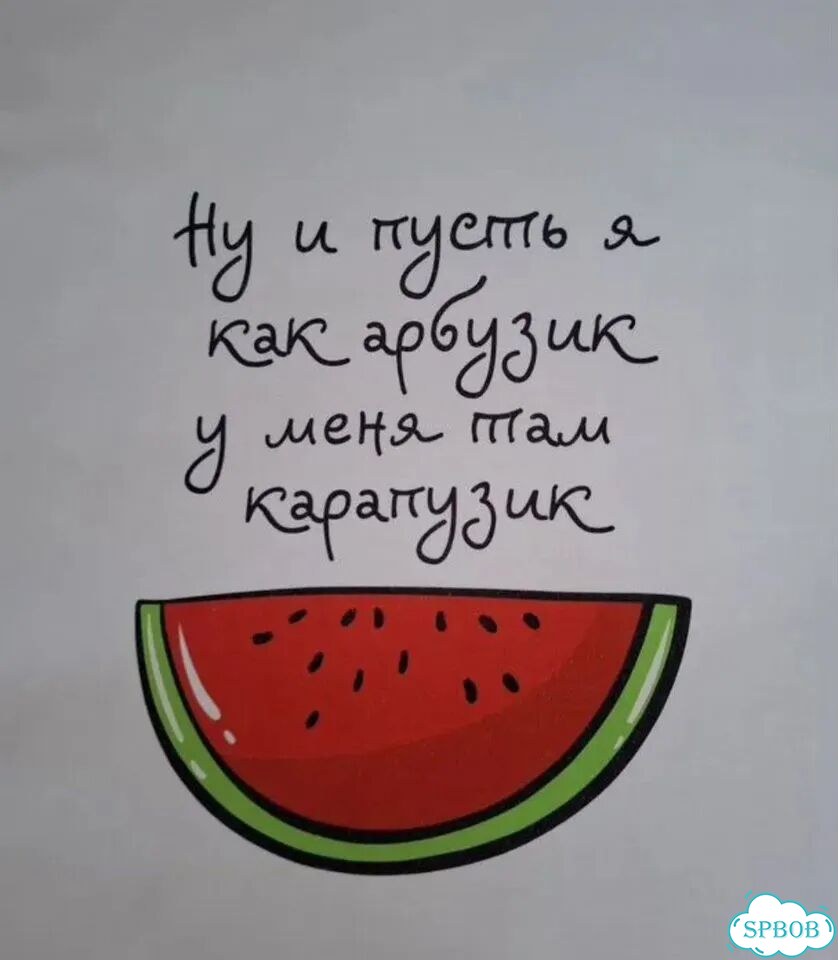 Ну и пусть я
как арбузик
у меня там
карапузик
SPBOB